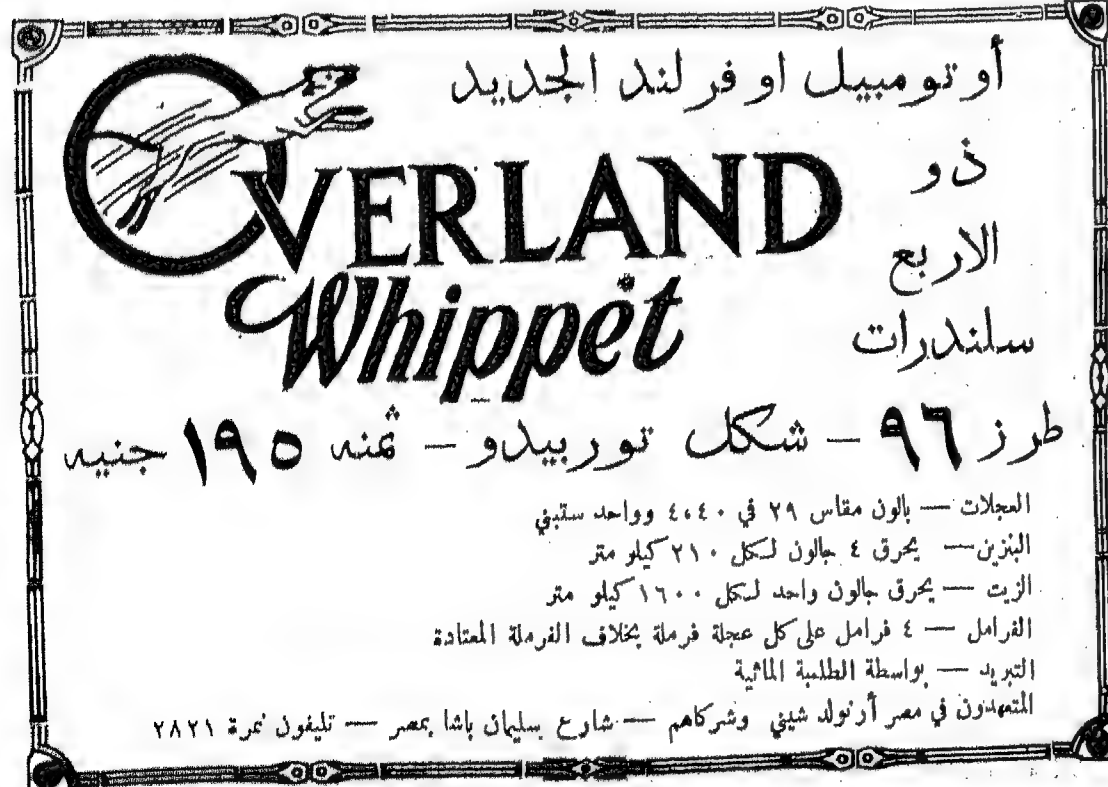 أوتومبيل اوفرلند الجديد
OVERLAND
Whippet
ذو
الاربع
سلندرات
طرز ٩٦ — شكل توربيدو — ثمنه ١٩٥ جنيه
العجلات — بالون مقاس ٢٩ في ٤،٤٠ وواحد ستبني
البنزين — يحرق ٤ جالون لكل ٢١٠ كيلو متر
الزيت — يحرق جالون واحد لكل ١٦٠٠ كيلو متر
الفرامل — ٤ فرامل على كل عجلة فرملة بخلاف الفرملة المعتادة
التبريد — بواسطة الطلمبة المائية
المتعهدون في مصر أرنولد شيني وشركاهم — شارع سليمان باشا بمصر — تليفون نمرة ٢٨٢١